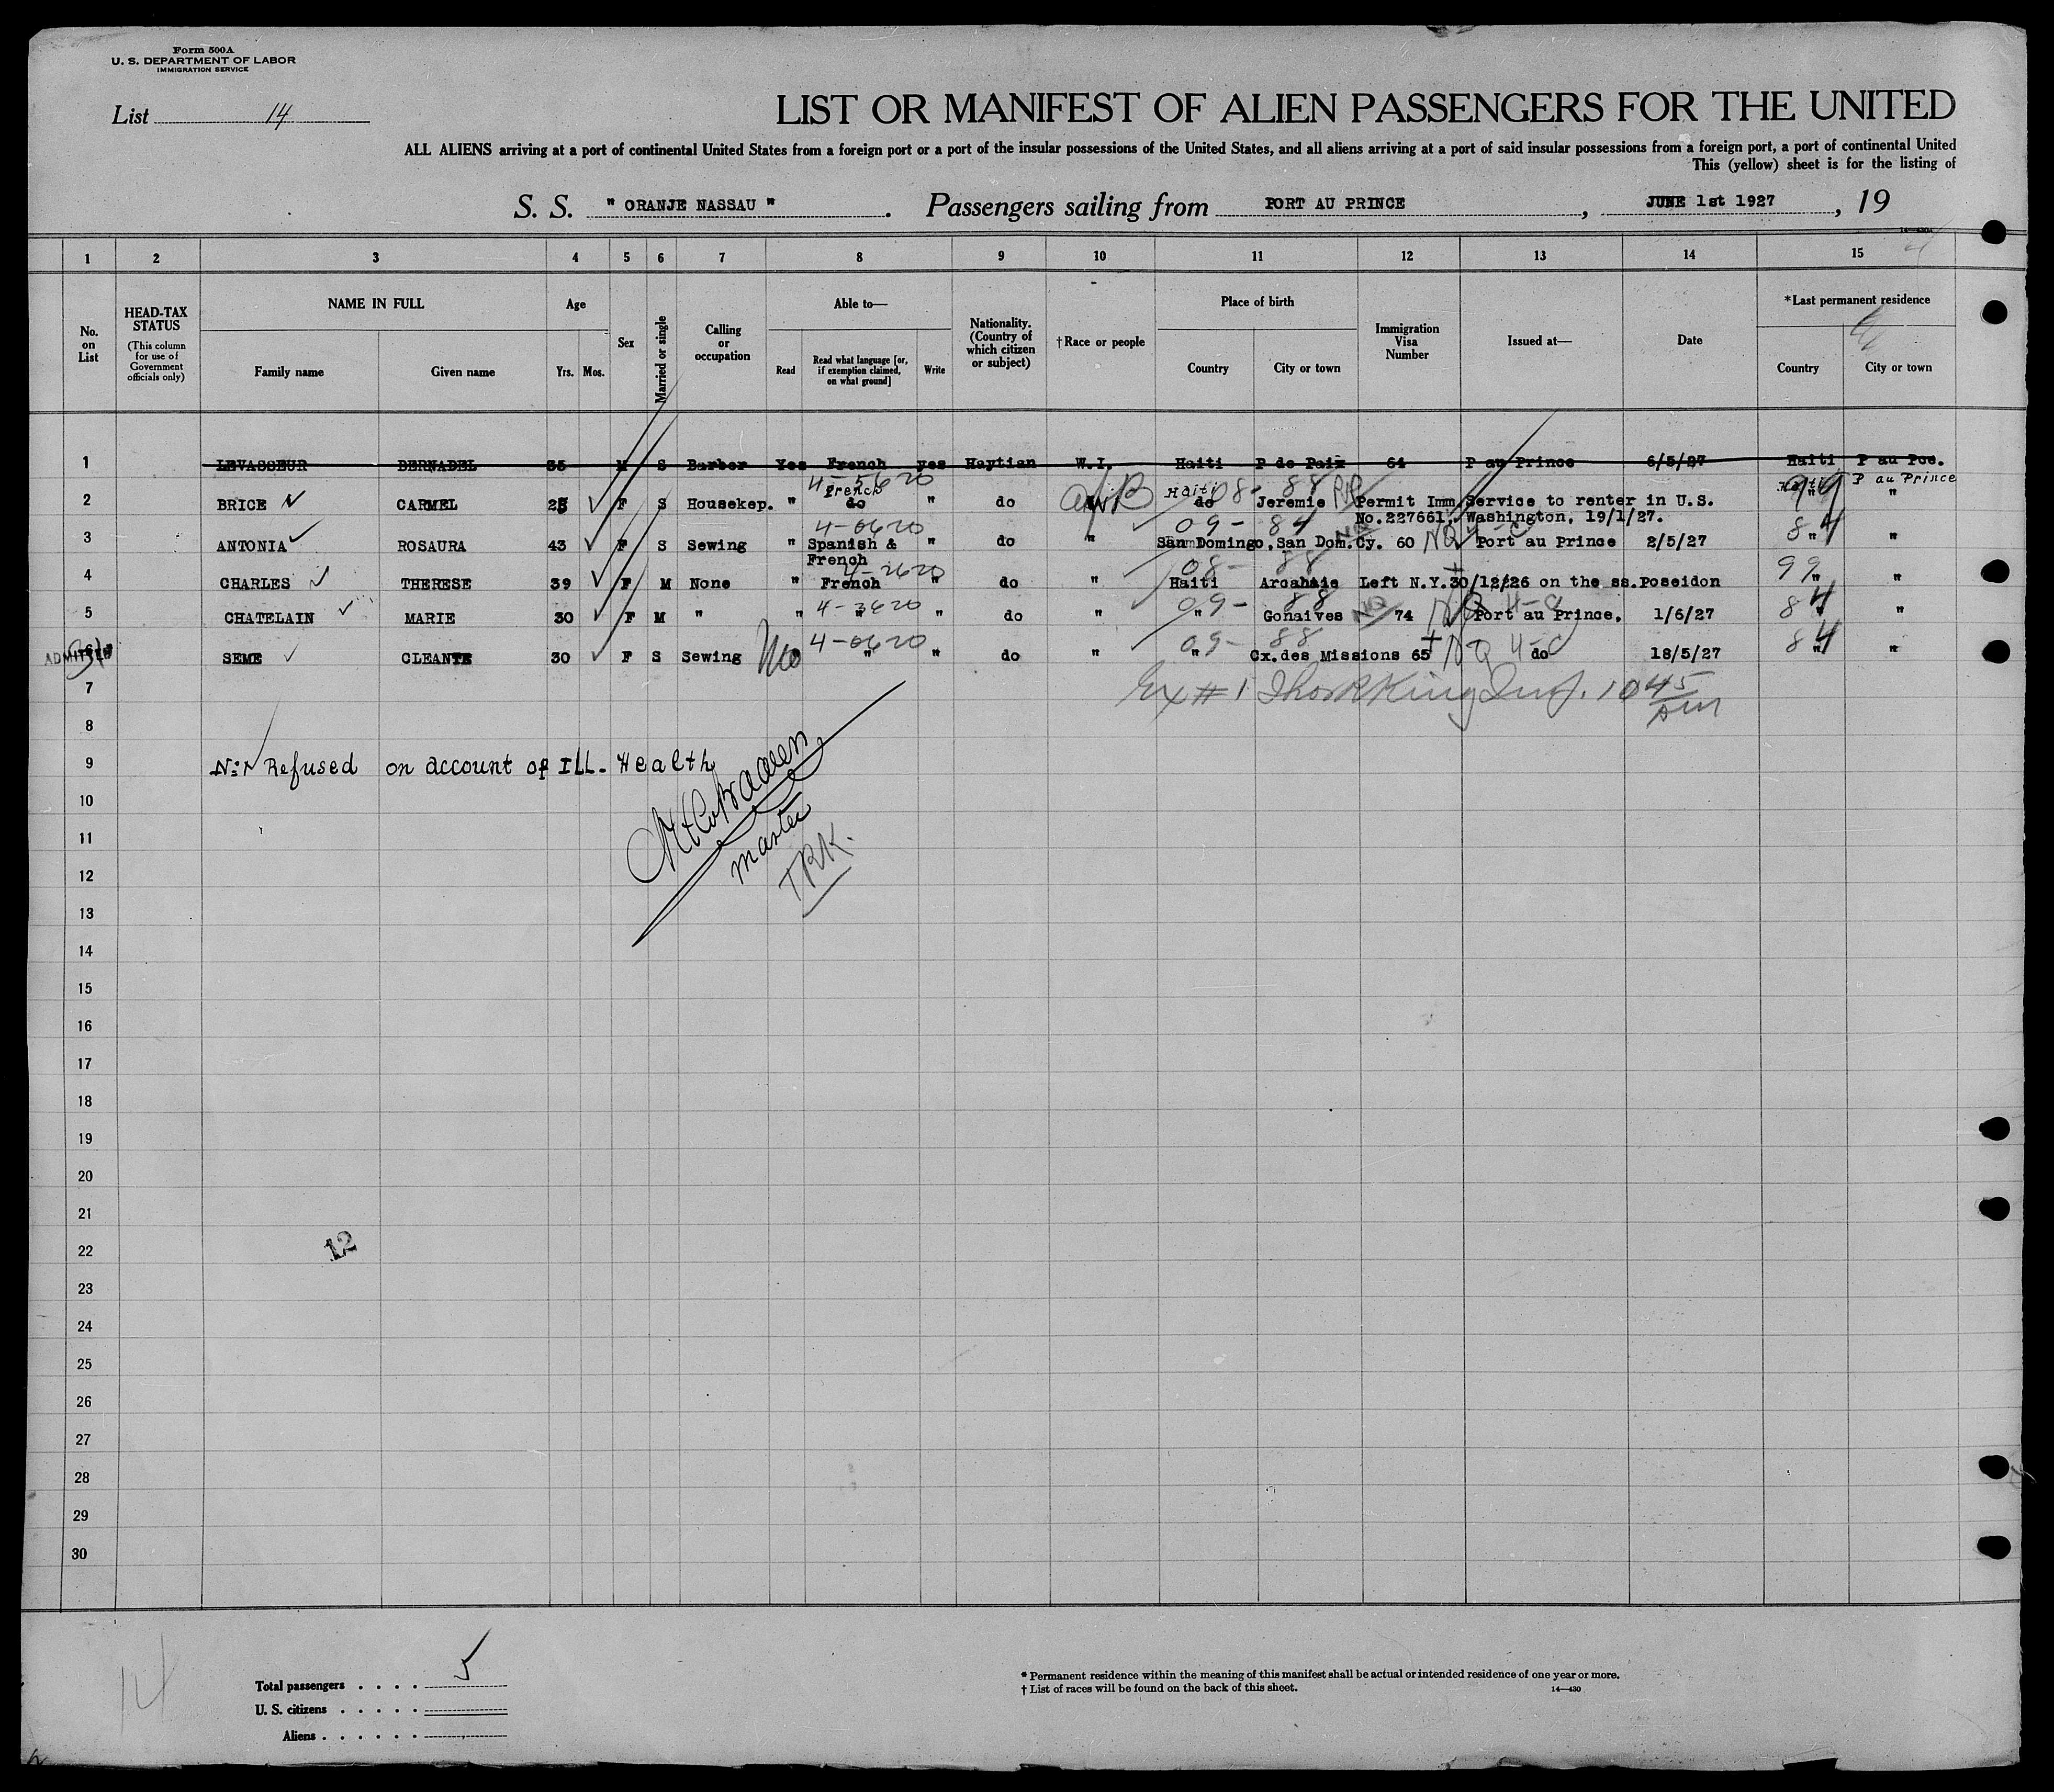 Form 500A
U. S. DEPARTMENT OF LABOR
IMMIGRATION SERVICE
List 14
LIST OR MANIFEST OF ALIEN PASSENGERS FOR THE UNITED
ALL ALIENS arriving at a port of continental United States from a foreign port or a port of the insular possessions of the United States, and all aliens arriving at a port of said insular possessions from a foreign port, a port of continental United
This (yellow) sheet is for the listing of
S. S. " ORANJE NASSAU " . Passengers sailing from PORT AU PRINCE , JUNE 1st 1927 , 19
14—430a
1 2 3 4 5 6 7 8 9 10 11 12 13 14 15
No. on List
HEAD-TAX STATUS
(This column for use of Government officials only)
NAME IN FULL
Family name Given name
Age
Yrs. Mos.
Sex
Married or single
Calling or occupation
Able to—
Read Read what language [or, if exemption claimed, on what ground] Write
Nationality. (Country of which citizen or subject)
†Race or people
Place of birth
Country City or town
Immigration Visa Number
Issued at—
Date
*Last permanent residence
Country City or town
1 LEVASSEUR BERNADEL 35 M S Barber Yes French yes Haytian W.I. Haiti P de Paix 64 P au Prince 6/5/27 Haiti P au Pce.
4-5620 French Haiti 08- 88 99 P au Prince
2 BRICE CARMEL 25 F S Housekep. " do " do AfB do Jeremie Permit Imm Service to renter in U.S. "
No.227661, Washington, 19/1/27.
4-0620 09- 84 84
3 ANTONIA ROSAURA 43 F S Sewing " Spanish & French " do " San Domingo, San Dom.Cy. 60 NQ 4-C Port au Prince 2/5/27 " "
4-2620 08- 88 99
4 CHARLES THERESE 39 F M None " French " do " Haiti Arcahaie Left N.Y.30/12/26 on the ss.Poseidon " "
4-3620 09- 88 84
5 CHATELAIN MARIE 30 F M " " " " do " " Gonaives 74 NQ 4-C Port au Prince. 1/6/27 " "
4-0620 09- 88 84
ADMITTED
6 SEME CLEANTE 30 F S Sewing No " " do " " Cx.des Missions 65 NQ 4-C do 18/5/27 " "
7 Ex # 1 Thos R King Insp. 10 45 AM
8
9 N:1 Refused on account of ILL. Health
master
TRK.
10
11
12
13
14
15
16
17
18
19
20
21
22
12
23
24
25
26
27
28
29
30
14
Total passengers . . . . 5
U. S. citizens . . . . .
Aliens . . . . . .
* Permanent residence within the meaning of this manifest shall be actual or intended residence of one year or more.
† List of races will be found on the back of this sheet.
14—430